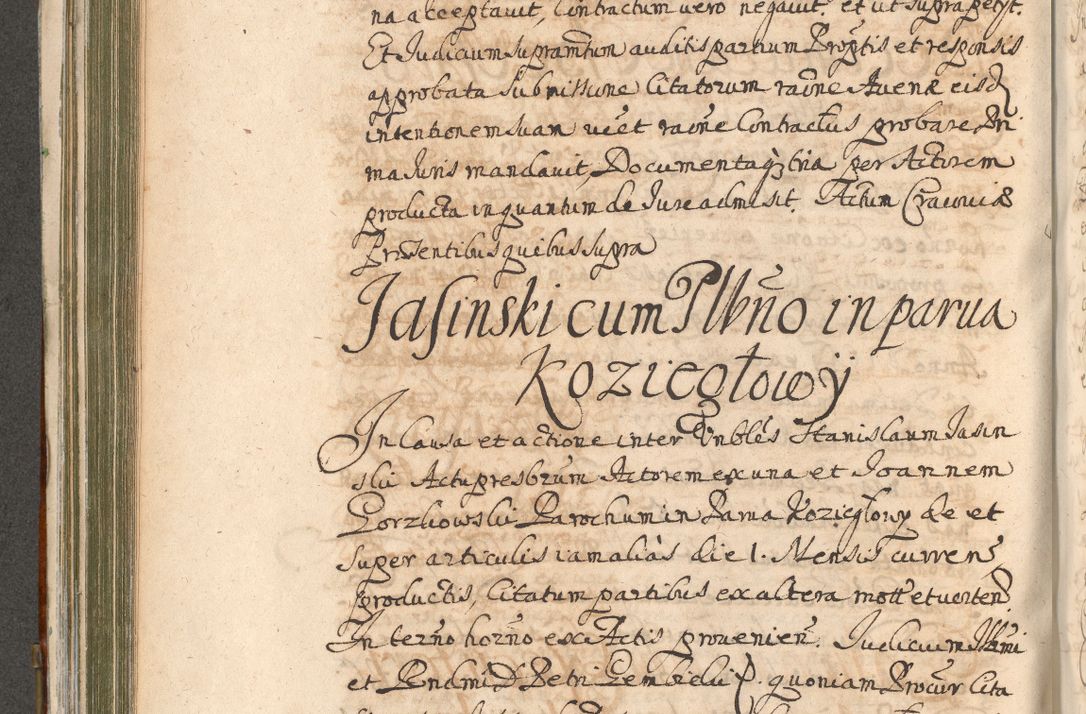 na acceptavit, Contractum vero negavit et ut supra petyt.
Et Judicium supramtum auditis partium Proptis et responsis
approbata submissione Citatorum raõne Avenæ eisd
intentionem suam vi et raõne Contractus probare Pri
ma Juris mandavit, Documentaq tria per Actorem
producta in quantum de Jure admisit. Actum Cracoviæ
Præsentibus quibus supra
Jasinski cum Plbño in parva
Koziegłowÿ
In Causa et actione inter Vnbles Stanislaum Jasin
ski Actu presbrum Actorem ex una et Joannem
Gorzkowski Parochum in Parva Koziegłowy de et
super articulis iam aliàs die 1. Mensis curren
productis, Citatum partibus ex altera mott et verten
In terño horño ex Actis provenien. Judicium Illrmi
et Rndmi D Petri Gembicki quoniam Procur Cita